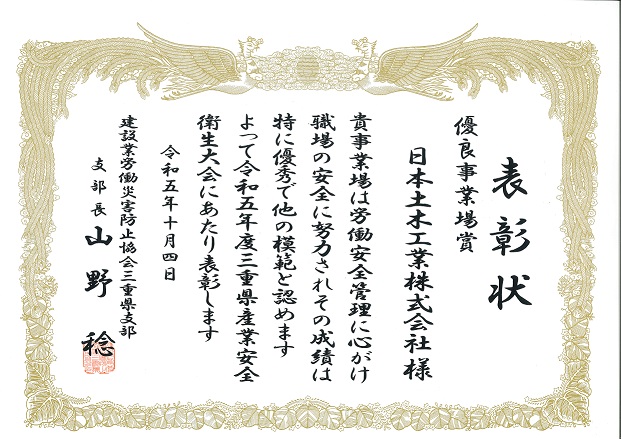 表彰状
優良事業場賞
日本土木工業株式会社様
貴事業場は労働安全管理に心がけ
職場の安全に努力されその成績は
特に優秀で他の模範と認めます
よって令和五年度三重県産業安全
衛生大会にあたり表彰します
令和五年十月四日
建設業労働災害防止協会三重県支部
支部長 山野 稔